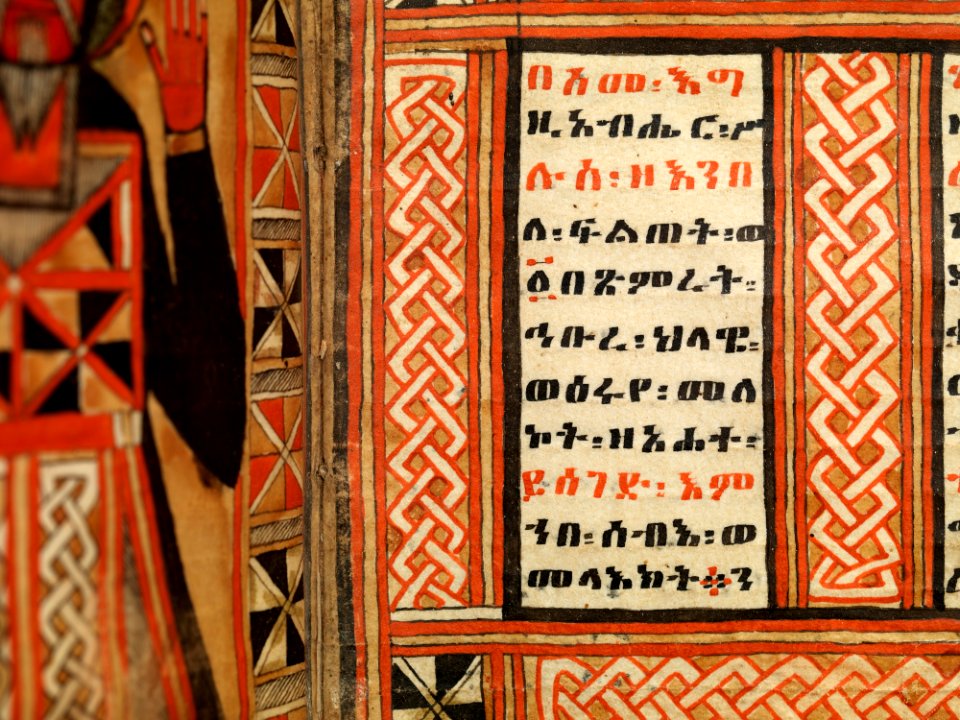 በስመ፡እግ
ዚአብሔር፡ሥ
ሉስ፡ዘእንበ
ለ፡ፍልጠት፡ወ
ልበጽምረት፡
ኅቡረ፡ህላዌ፡
ወዕሩየ፡መለ
ኮት፡ዘአሐተ፡
ይሰገድ፡እም
ኀበ፡ሰብእ፡ወ
መላእክት።ን